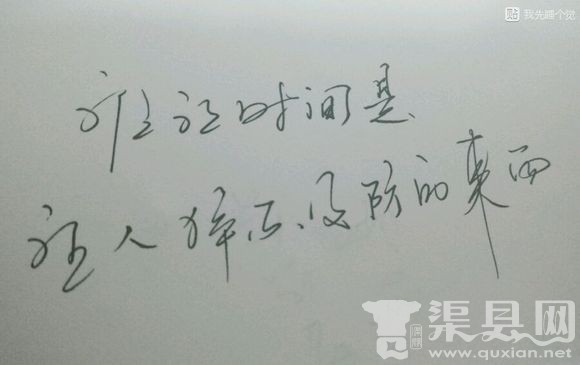 贴 我先睡个觉
谁让时间是
让人猝不及防的東西
渠县网
www.quxian.net